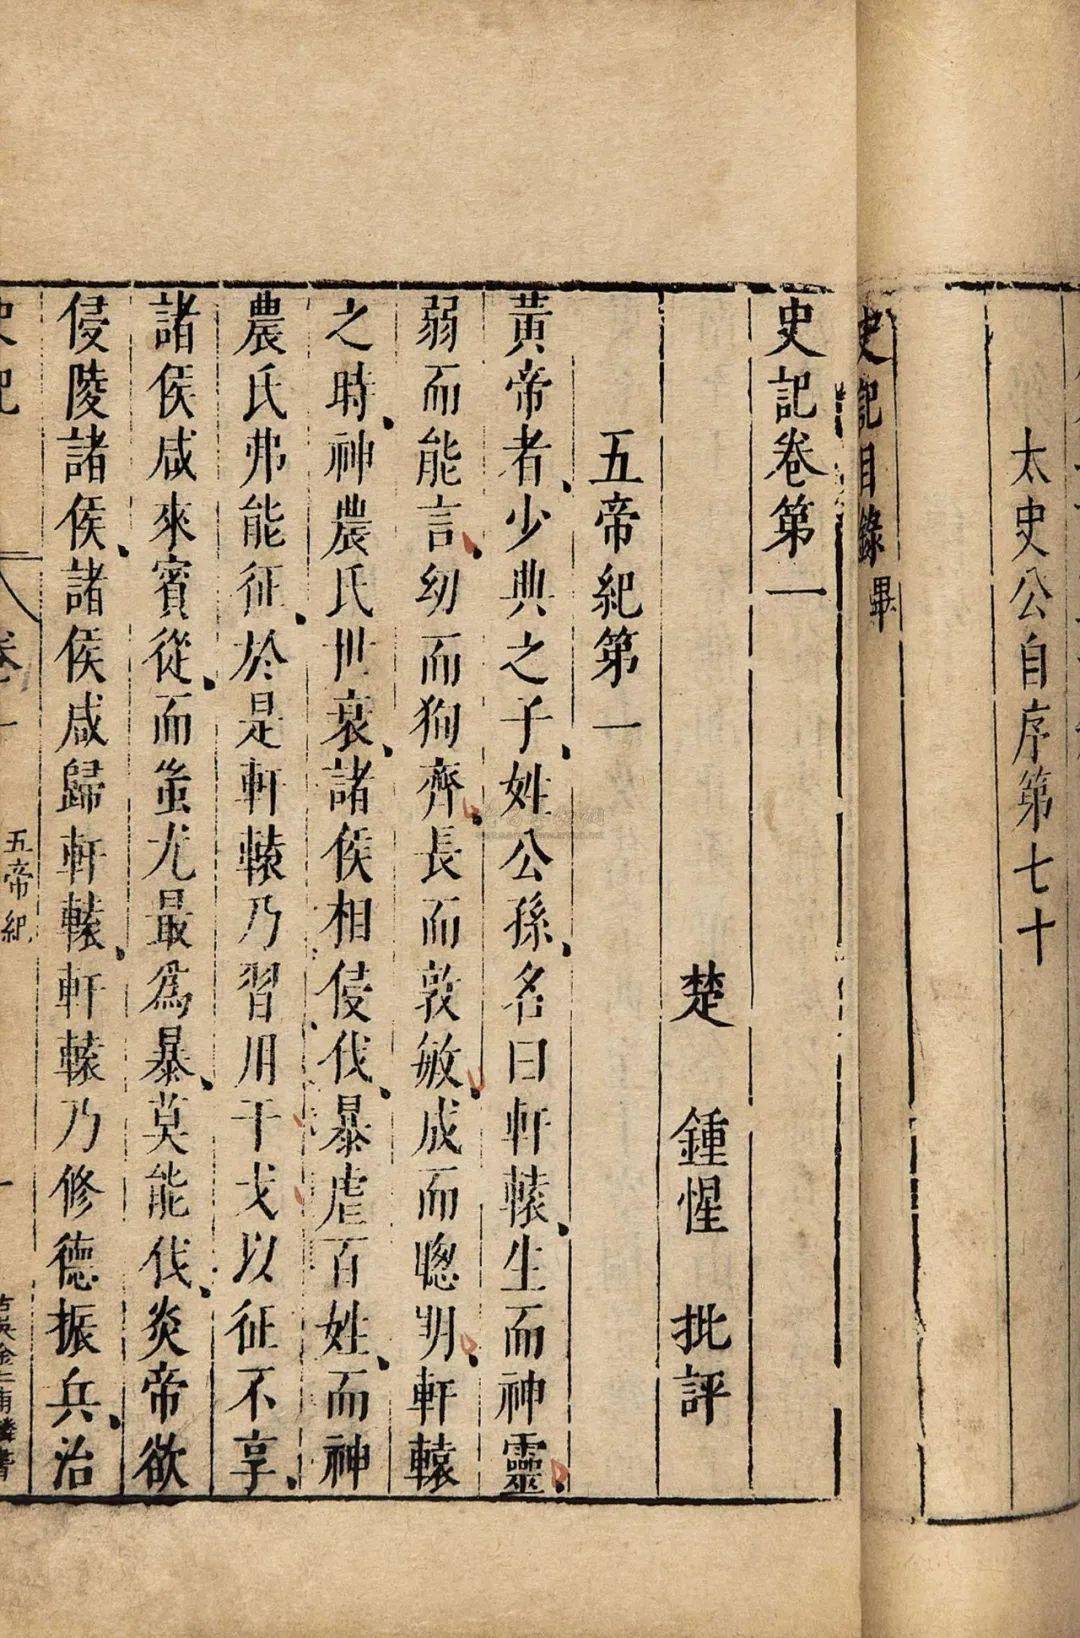 太史公自序第七十
史記目錄畢
史記卷第一
楚 鍾惺 批評
五帝紀第一
黃帝者少典之子姓公孫名曰軒轅生而神靈
弱而能言幼而狥齊長而敦敏成而聰明軒轅
之時神農氏世衰諸侯相侵伐暴虐百姓而神
農氏弗能征於是軒轅乃習用干戈以征不享
諸侯咸來賓從而蚩尤最爲暴莫能伐炎帝欲
侵陵諸侯諸侯咸歸軒轅軒轅乃修德振兵治
史記
卷一
五帝紀
一